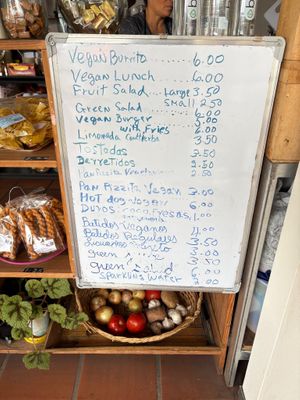 Vegan Burrito ..... 6.00
Vegan Lunch ..... 6.00
Fruit Salad ... Large 3.50
small 2.50
Green Salad ..... 6.00
Vegan Burger ..... 5.00
with Fries 6.00
Limonada 3.50
Tostados 3.50
Derretidos 2.50
2.50
Pan Pizzita Vegan 3.00
Hot dog Vegan 6.00
Duros: coco, Fresas, 1.00
Batidos Veganos 4.00
Batidos Regulares 3.50
3.00
green 3.50
green 6.00
Sparkling Water 2.00